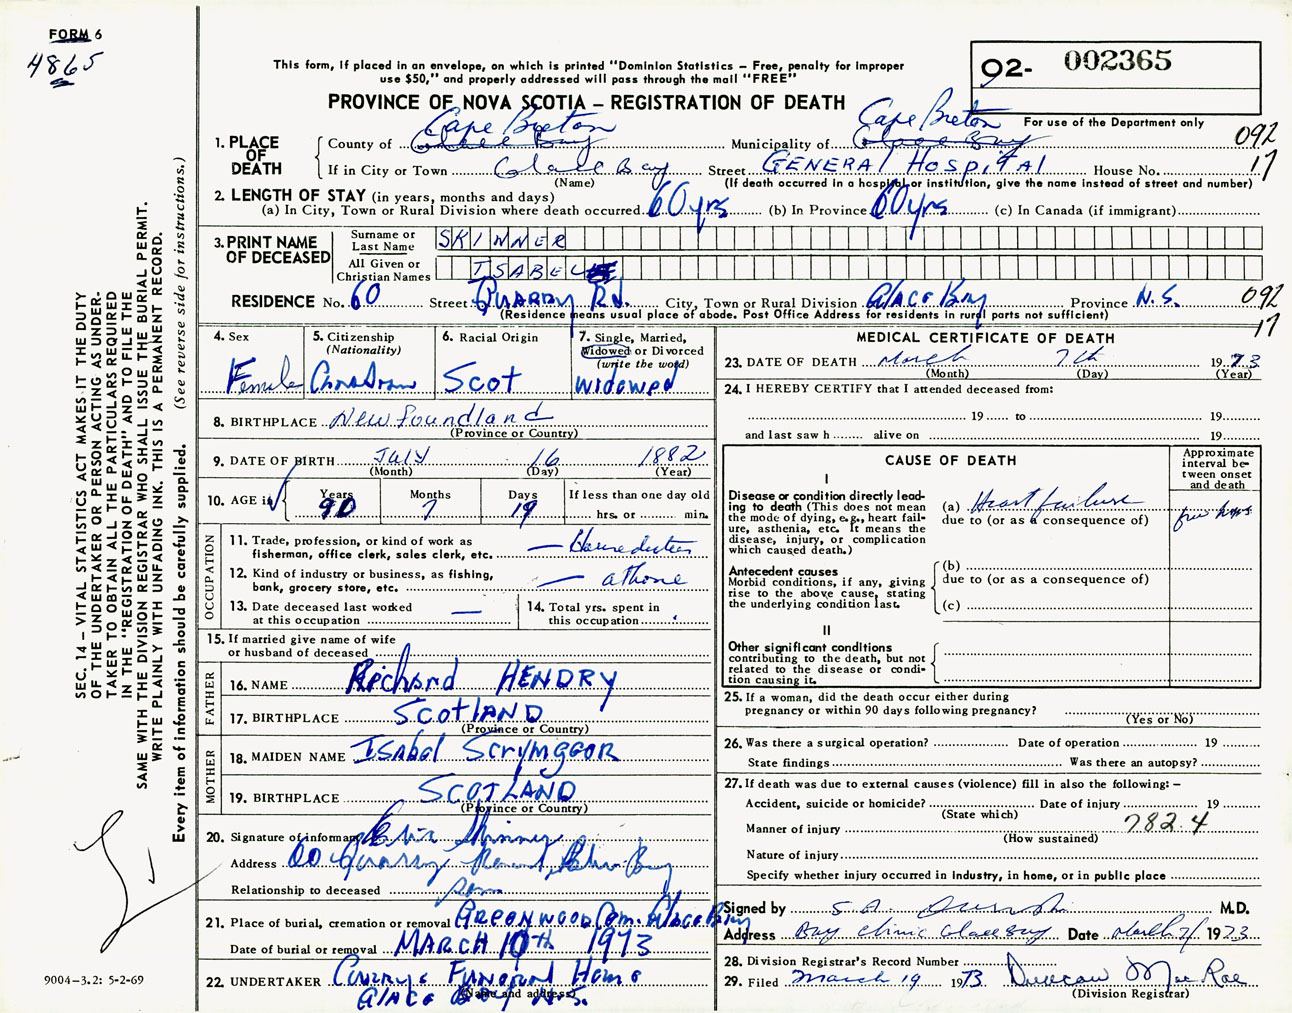 FORM 6
4865
This form, if placed in an envelope, on which is printed "Dominion Statistics – Free, penalty for improper
use $50," and properly addressed will pass through the mail "FREE"
02- 002365
For use of the Department only
PROVINCE OF NOVA SCOTIA – REGISTRATION OF DEATH
1. PLACE OF DEATH
Cape Breton Cape Breton
County of Glace Bay Municipality of Glace Bay 092
If in City or Town Glace Bay Street GENERAL HOSPITAL House No. 17
(Name) (If death occurred in a hospital or institution, give the name instead of street and number)
2. LENGTH OF STAY (in years, months and days)
(a) In City, Town or Rural Division where death occurred 60 yrs (b) In Province 60 yrs (c) In Canada (if immigrant)
3. PRINT NAME OF DECEASED
Surname or Last Name SKINNER
All Given or Christian Names ISABEL
RESIDENCE No. 60 Street Quarry Rd. City, Town or Rural Division Glace Bay Province N.S. 092
(Residence means usual place of abode. Post Office Address for residents in rural parts not sufficient) 17
4. Sex
Female
5. Citizenship
(Nationality)
Canadian
6. Racial Origin
Scot
7. Single, Married,
Widowed or Divorced
(write the word)
Widowed
8. BIRTHPLACE Newfoundland
(Province or Country)
9. DATE OF BIRTH July 16 1882
(Month) (Day) (Year)
10. AGE is
Years Months Days If less than one day old
90 7 19 hrs. or min.
OCCUPATION
11. Trade, profession, or kind of work as
fisherman, office clerk, sales clerk, etc. — Houseduties
12. Kind of industry or business, as fishing,
bank, grocery store, etc. — at home
13. Date deceased last worked
at this occupation —
14. Total yrs. spent in
this occupation
15. If married give name of wife
or husband of deceased
FATHER
16. NAME Richard HENDRY
17. BIRTHPLACE SCOTLAND
(Province or Country)
MOTHER
18. MAIDEN NAME Isabel Scrymgeor
19. BIRTHPLACE SCOTLAND
(Province or Country)
20. Signature of informant Skinner
Address 60 Quarry Road, Glace Bay
Relationship to deceased son
21. Place of burial, cremation or removal Greenwood Cem. Glace Bay
Date of burial or removal MARCH 10th 1973
22. UNDERTAKER Curry's Funeral Home
Glace Bay N.S.
(Name and address)
MEDICAL CERTIFICATE OF DEATH
23. DATE OF DEATH March 7th 1973
(Month) (Day) (Year)
24. I HEREBY CERTIFY that I attended deceased from:
19 to 19
and last saw h alive on 19
CAUSE OF DEATH
Approximate
interval be-
tween onset
and death
I
Disease or condition directly lead-
ing to death (This does not mean
the mode of dying, e.g., heart fail-
ure, asthenia, etc. It means the
disease, injury, or complication
which caused death.)
(a) Heart failure
few hours
due to (or as a consequence of)
Antecedent causes
Morbid conditions, if any, giving
rise to the above cause, stating
the underlying condition last.
(b)
due to (or as a consequence of)
(c)
II
Other significant conditions
contributing to the death, but not
related to the disease or condi-
tion causing it.
25. If a woman, did the death occur either during
pregnancy or within 90 days following pregnancy?
(Yes or No)
26. Was there a surgical operation? Date of operation 19
State findings Was there an autopsy?
27. If death was due to external causes (violence) fill in also the following: –
Accident, suicide or homicide? Date of injury 19
(State which) 782.4
Manner of injury
(How sustained)
Nature of injury
Specify whether injury occurred in industry, in home, or in public place
Signed by S. A. M.D.
Address Bay Clinic Glace Bay Date March 7/ 1973
28. Division Registrar's Record Number
29. Filed March 19 1973 Duncan MacRae
(Division Registrar)
SEC. 14 – VITAL STATISTICS ACT MAKES IT THE DUTY
OF THE UNDERTAKER OR PERSON ACTING AS UNDER-
TAKER TO OBTAIN ALL THE PARTICULARS REQUIRED
IN THE "REGISTRATION OF DEATH" AND TO FILE THE
SAME WITH THE DIVISION REGISTRAR WHO SHALL ISSUE THE BURIAL PERMIT.
WRITE PLAINLY WITH UNFADING INK. THIS IS A PERMANENT RECORD.
Every item of information should be carefully supplied. (See reverse side for instructions.)
9004-3.2: 5-2-69